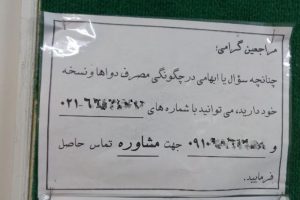 مراجعین گرامی:
چنانچه سؤال یا ابهامی در چگونگی مصرف دواها و نسخه
خود دارید، می توانید با شماره های ۰۲۱-۶۶
و ۰۹۱۰ جهت مشاوره تماس حاصل
فرمایید.